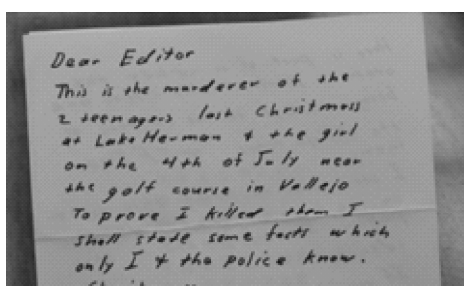 Dear Editor
This is the murderer of the
2 teenagers last Christmass
at Lake Herman & the girl
on the 4th of July near
the golf course in Vallejo
To prove I killed them I
shall state some facts which
only I & the police know.